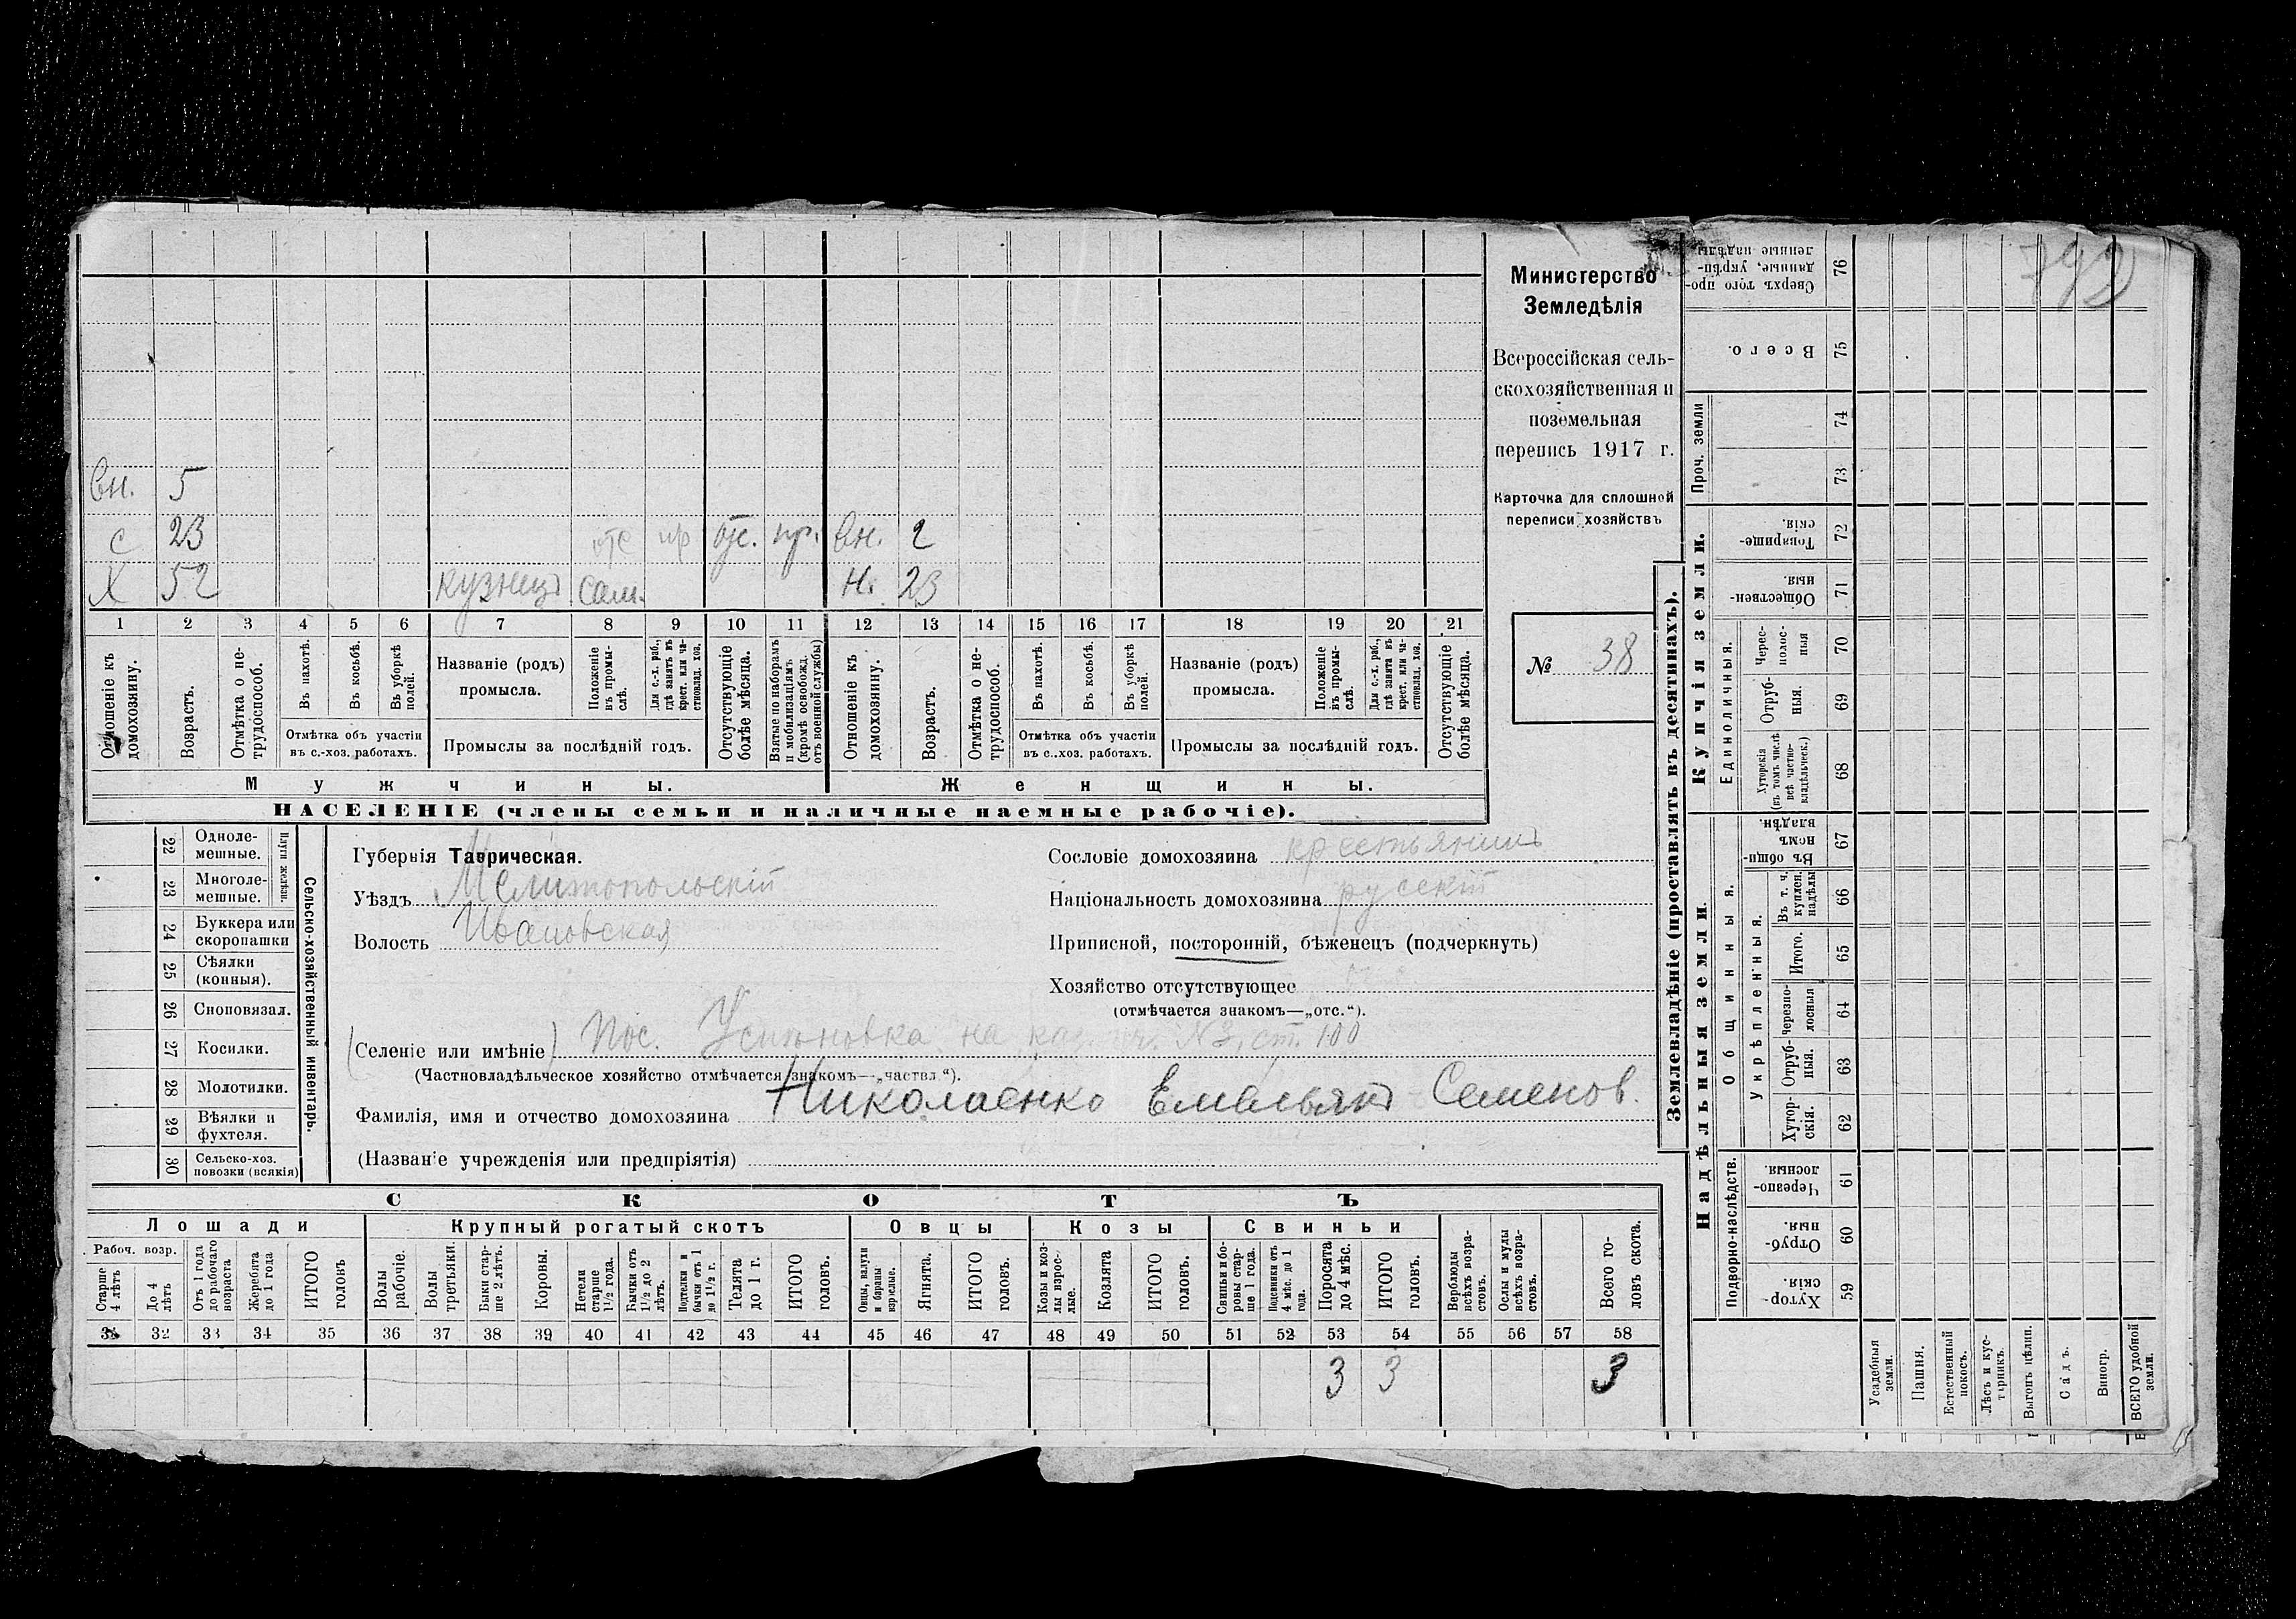 792
вн. 5
с 23 отс пр отс. пр. вн. 2
Х 52 кузнец сам. н. 23
1 2 3 4 5 6 7 8 9 10 11 12 13 14 15 16 17 18 19 20 21
Отношеніе къ домохозяину.
Возрастъ.
Отмѣтка о нетрудоспособ.
Въ пахотѣ.
Въ косьбѣ.
Въ уборкѣ полей.
Отмѣтка объ участіи
въ с.-хоз. работахъ.
Названіе (родъ)
промысла.
Положеніе въ промыслѣ.
Для с.-х. раб., гдѣ занятъ въ крест. или частновлад. хоз.
Промыслы за послѣдній годъ.
Отсутствующіе болѣе мѣсяца.
Взятые по наборамъ и мобилизаціямъ (кромѣ освобожд. отъ военной службы)
Отношеніе къ домохозяину.
Возрастъ.
Отмѣтка о нетрудоспособ.
Въ пахотѣ.
Въ косьбѣ.
Въ уборкѣ полей.
Отмѣтка объ участіи
въ с.-хоз. работахъ.
Названіе (родъ)
промысла.
Положеніе въ промыслѣ.
Для с.-х. раб., гдѣ занята въ крест. или частновлад. хоз.
Промыслы за послѣдній годъ.
Отсутствующіе болѣе мѣсяца.
Мужчины. Женщины.
НАСЕЛЕНІЕ (члены семьи и наличные наемные рабочіе).
Министерство
Земледѣлія
Всероссійская сель-
скохозяйственная и
поземельная
перепись 1917 г.
Карточка для сплошной
переписи хозяйствъ
№ 38
22 Одноле-
мешные.
23 Многоле-
мешные.
Плуги желѣзн.
24 Буккера или
скоропашки
25 Сѣялки
(конныя).
26 Сноповязал.
27 Косилки.
28 Молотилки.
29 Вѣялки и
фухтеля.
30 Сельско-хоз.
повозки (всякія)
Сельско-хозяйственный инвентарь.
Губернія Таврическая.
Уѣздъ Мелитопольскій
Волость Ивановская
Сословіе домохозяина крестьянинъ
Національность домохозяина русскій
Приписной, посторонній, бѣженецъ (подчеркнуть)
Хозяйство отсутствующее
(отмѣчается знакомъ—„отс.“).
(Селеніе или имѣніе) Пос. на N3, ст. 100
(Частновладѣльческое хозяйство отмѣчается знакомъ—„частвл.“).
Фамилія, имя и отчество домохозяина Николаенко Емельянъ Семенов.
(Названіе учрежденія или предпріятія)
СКОТЪ
Лошади Крупный рогатый скотъ Овцы Козы Свиньи
Рабоч. возр.
Старше 4 лѣтъ
До 4 лѣтъ
Отъ 1 года до рабочаго возраста
Жеребята до 1 года
ИТОГО головъ
Волы рабочіе.
Волы третьяки.
Быки старше 2 лѣтъ.
Коровы.
Нетели старше 1½ года.
Бычки отъ 1½ до 2 лѣтъ.
Подтелки и бычки отъ 1 до 1½ г.
Телята до 1 г.
ИТОГО головъ.
Овцы, валухи и бараны взрослые.
Ягнята.
ИТОГО головъ.
Козы и козлы взрослые.
Козлята
ИТОГО головъ.
Свиньи и боровы старше 1 года.
Подсвинки отъ 4 мѣс. до 1 года.
Поросята до 4 мѣс.
ИТОГО головъ.
Верблюды всѣхъ возрастовъ.
Ослы и мулы всѣхъ возрастовъ.
Всего головъ скота.
31 32 33 34 35 36 37 38 39 40 41 42 43 44 45 46 47 48 49 50 51 52 53 54 55 56 57 58
3 3 3
Землевладѣніе (проставлять въ десятинахъ).
Купчія земли.
Надѣльныя земли.
Сверхъ того проданные, укрѣпленные надѣлы 76
Всего. 75
Проч. земли 74
73
Товарищескія. 72
Общественныя. 71
Единоличныя.
Чересполосныя 70
Отрубныя. 69
Хуторскія (въ томъ числѣ всѣ частновладѣльческ.) 68
Общинныя.
Въ общинномъ владѣн. 67
Укрѣпленныя.
Въ т. ч. куплен. надѣлы 66
Итого. 65
Черезполосныя 64
Отрубныя. 63
Хуторскія. 62
Подворно-наслѣдств.
Черезполосныя. 61
Отрубныя. 60
Хуторскія. 59
Усадебныя земли.
Пашня.
Естественный покосъ.
Лѣсъ и кустарникъ.
Выгонъ цѣлин.
Садъ.
Виногр.
ВСЕГО удобной земли.